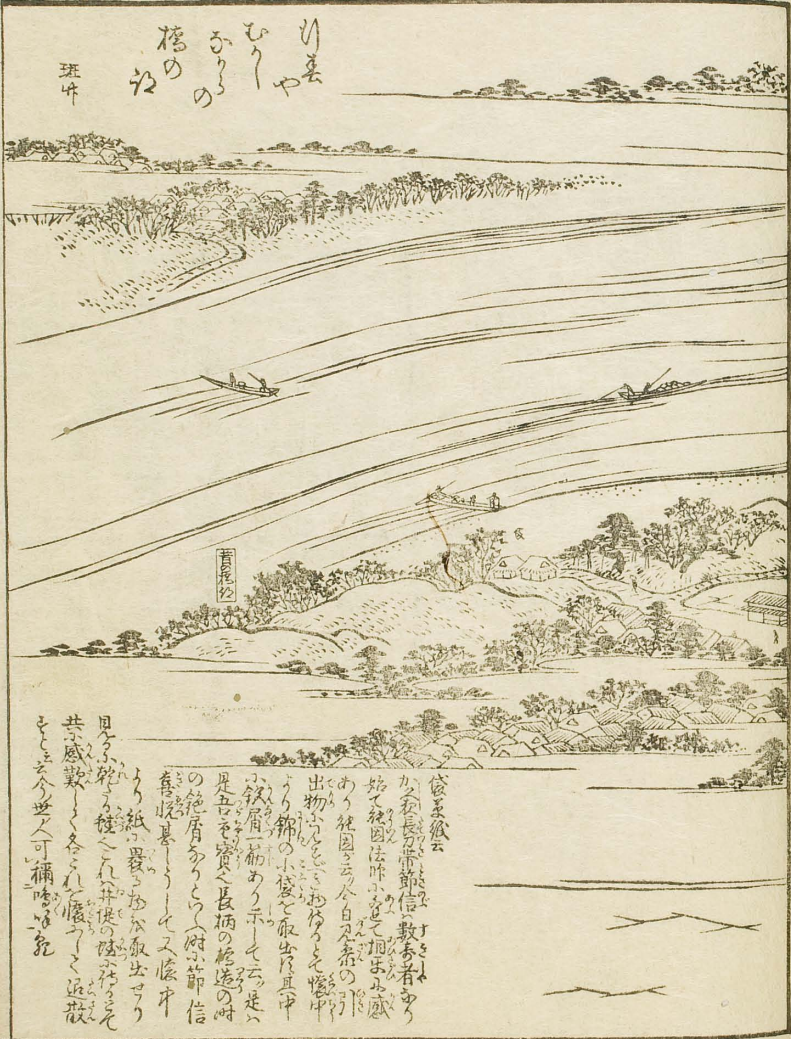 行春や
むかし
ながらの
橋の
跡
斑竹
袋草紙云
かく夜長刀帯節信ハ数奇者なり
始て能因法師に逢て相共に感
あり能因が云今日見参の引
出物に見すべき物侍りとて懐中
より錦の小袋を取出す其中
に鉋屑一筋あり示して云是ハ
是吾重宝也長柄の橋造の時
の鉋屑なりといへり時に節信
喜悦甚しうして又懐中
より紙に裹る物を取出せり
見るに乾る蛙也これハ井堤の蛙に侍るとて
共感歎して各これを懐にして退散
すと云云今世人可称嗚呼歟